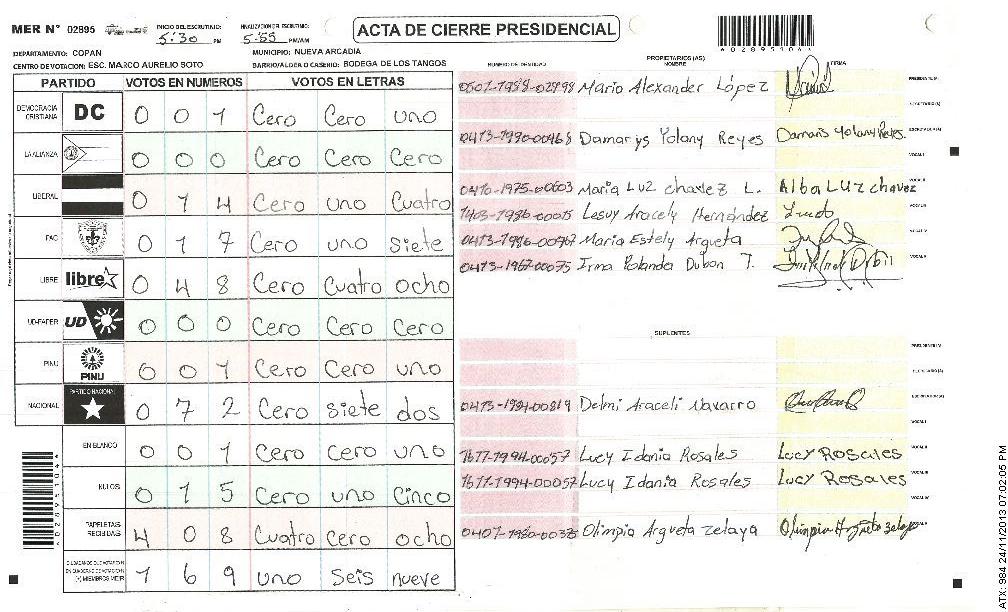 MER N° 02895
INICIO DEL ESCRUTINIO: 5:30 PM
FINALIZACION DEL ESCRUTINIO: 5:55 PM/AM
ACTA DE CIERRE PRESIDENCIAL
DEPARTAMENTO: COPAN
MUNICIPIO: NUEVA ARCADIA
CENTRO DE VOTACION: ESC. MARCO AURELIO SOTO
BARRIO/ALDEA O CASERIO: BODEGA DE LOS TANGOS
PARTIDO VOTOS EN NUMEROS VOTOS EN LETRAS
DEMOCRACIA CRISTIANA DC 0 0 1 Cero Cero uno
LA ALIANZA 0 0 0 Cero Cero Cero
LIBERAL 0 1 4 Cero uno Cuatro
PAC 0 1 7 Cero uno siete
LIBRE libre 0 4 8 Cero Cuatro ocho
UD-FAPER UD 0 0 0 Cero Cero Cero
PINU PINU 0 0 1 Cero Cero uno
NACIONAL PARTIDO NACIONAL 0 7 2 Cero siete dos
EN BLANCO 0 0 1 Cero Cero uno
NULOS 0 1 5 Cero uno Cinco
PAPELETAS RECIBIDAS 4 0 8 Cuatro cero ocho
1 6 9 uno seis nueve
NUMERO DE IDENTIDAD PROPIETARIOS (AS) NOMBRE FIRMA
Mario Alexander López
0413-1990-00468 Damarys Yolany Reyes Damaris Yolany Reyes.
0410-1975-00603 Maria Luz chavez L. Alba LUZ chavez
Lesvy Aracely Hernández
Maria Estely Argueta
0413-1967-00075 Irma Yolanda Dubon T.
SUPLENTES
Delmi Araceli Navarro
1617-1994-00057 Lucy Idania Rosales Lucy Rosales
1617-1994-00057 Lucy Idania Rosales Lucy Rosales
Olimpia Argueta zelaya
ATX: 984 24/11/2013 07:02:05 PM